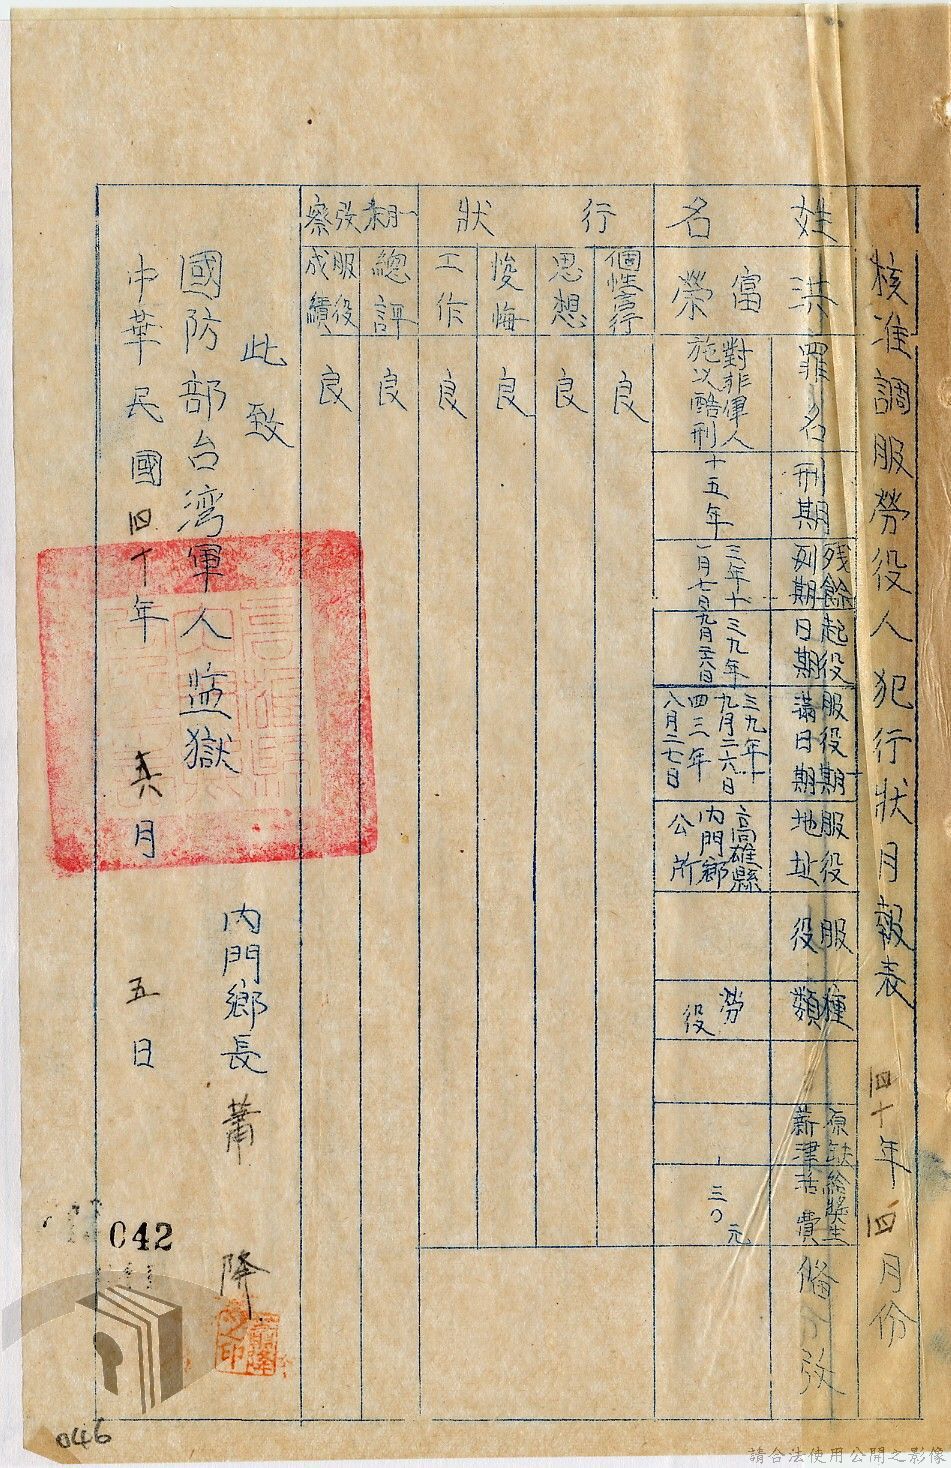 核准調服勞役人犯行狀月報表 四十年 四月份
姓名
洪富榮
罪名
對非軍人
施以酷刑
刑期
十五年
殘餘
刑期
三年十
一月七日
起役
日期
三九年
九月二六日
服役期
滿日期
三九年
九月二六日
四三年
八月二七日
服役
地址
高雄縣
內門鄉
公所
服役
種類
勞役
原缺
薪津
給獎生
活費
三〇元
備攷
行狀
個性言行
良
思想
良
悛悔
良
工作
良
期末攷察
總評
良
服役
成績
良
此致
國防部台湾軍人監獄
內門鄉長 蕭 降
中華民國四十年 月 五日
042
046
請合法使用公開之影像